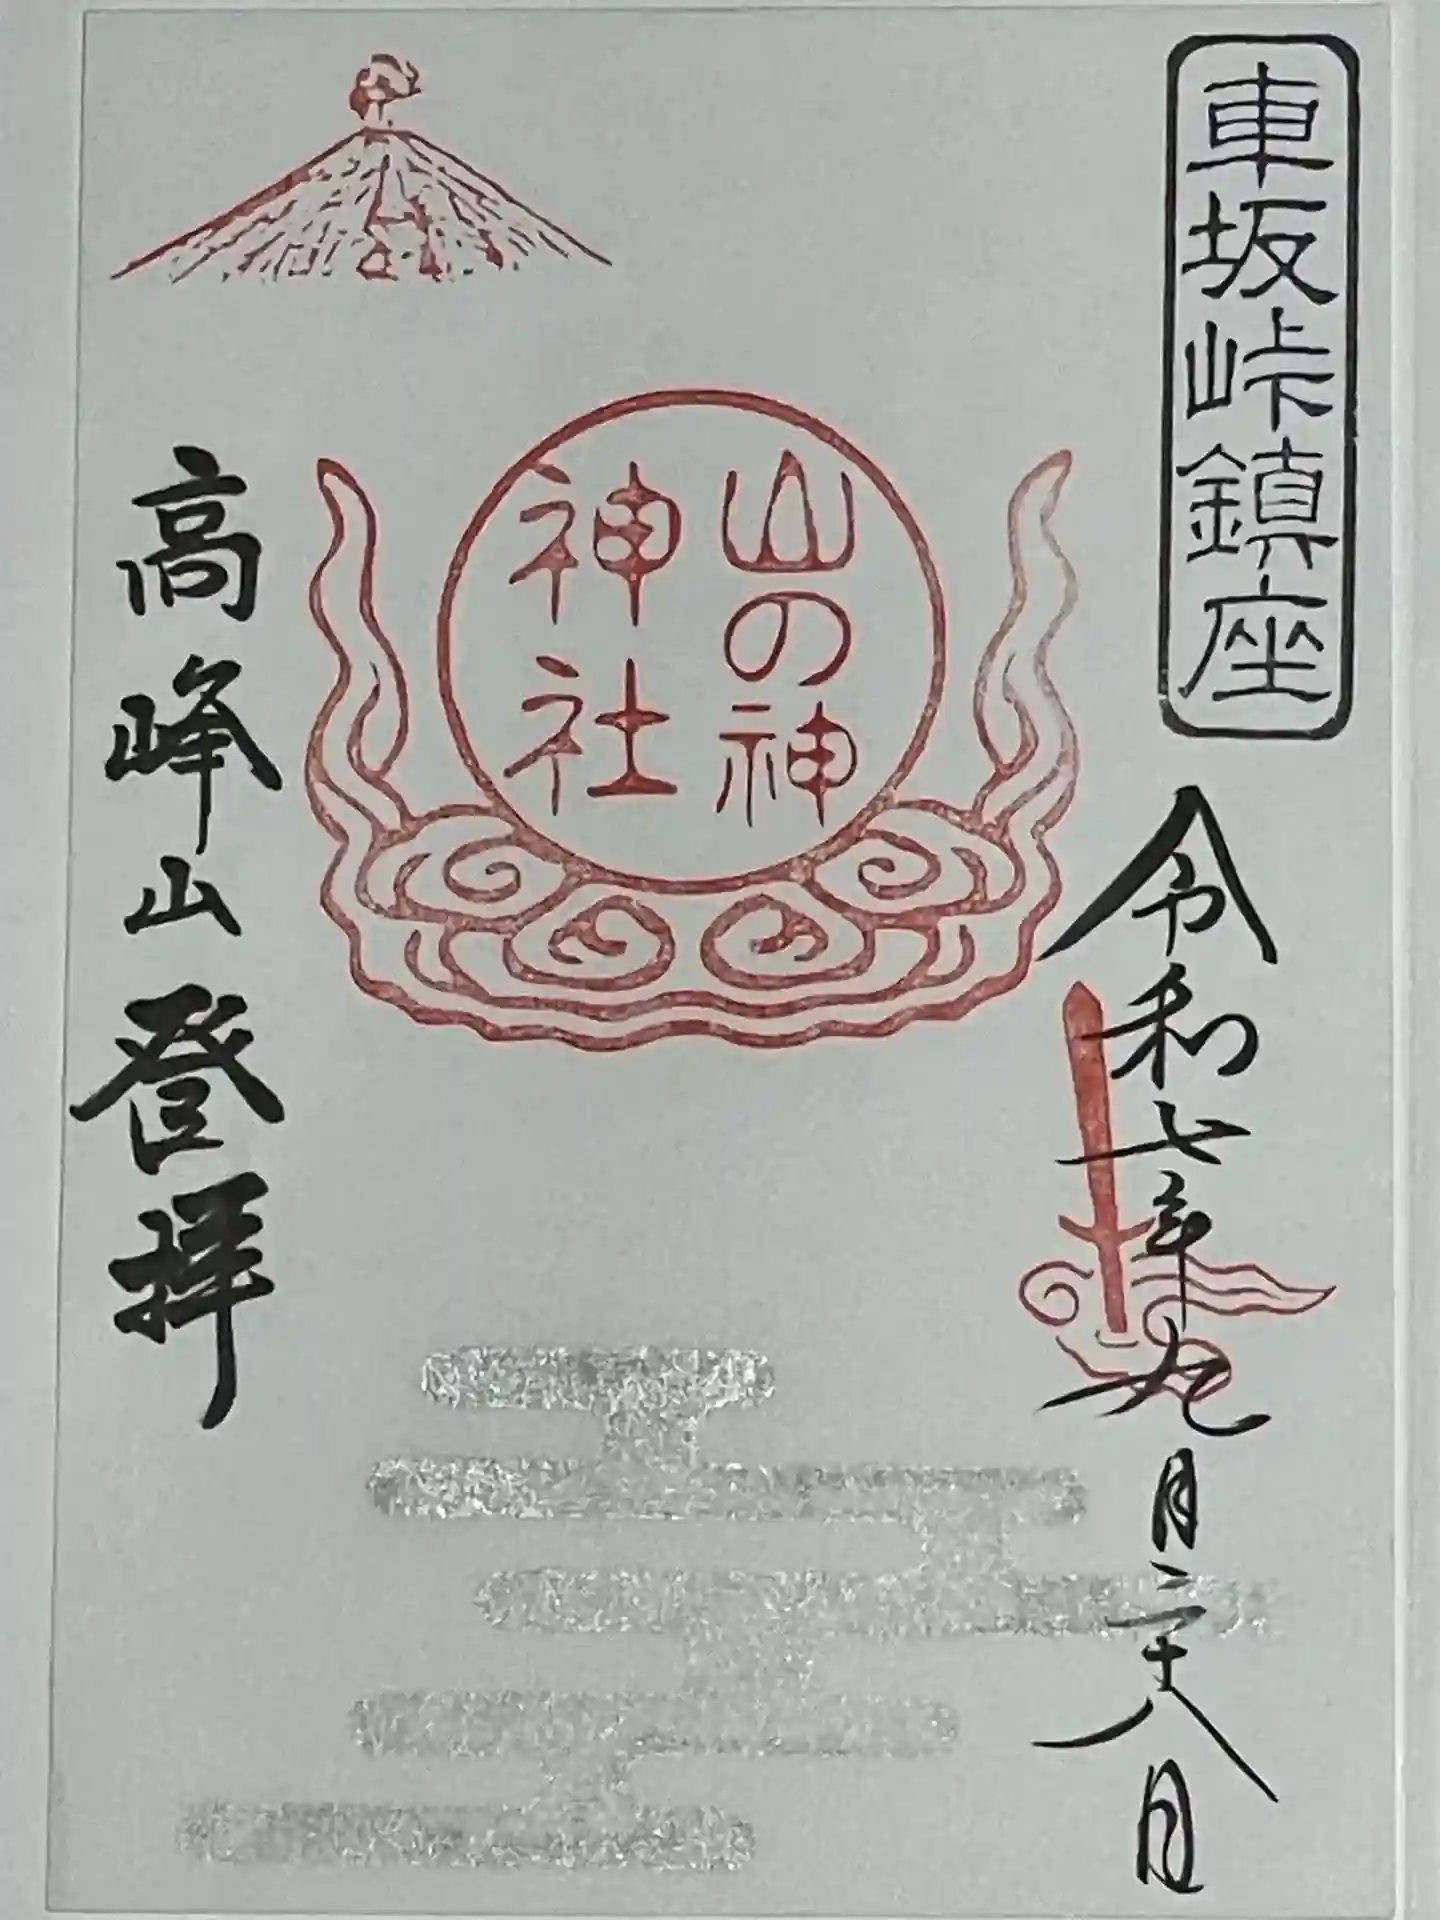 車坂峠鎮座
令和七年九月二十八日
山の神
神社
高峰山登拝